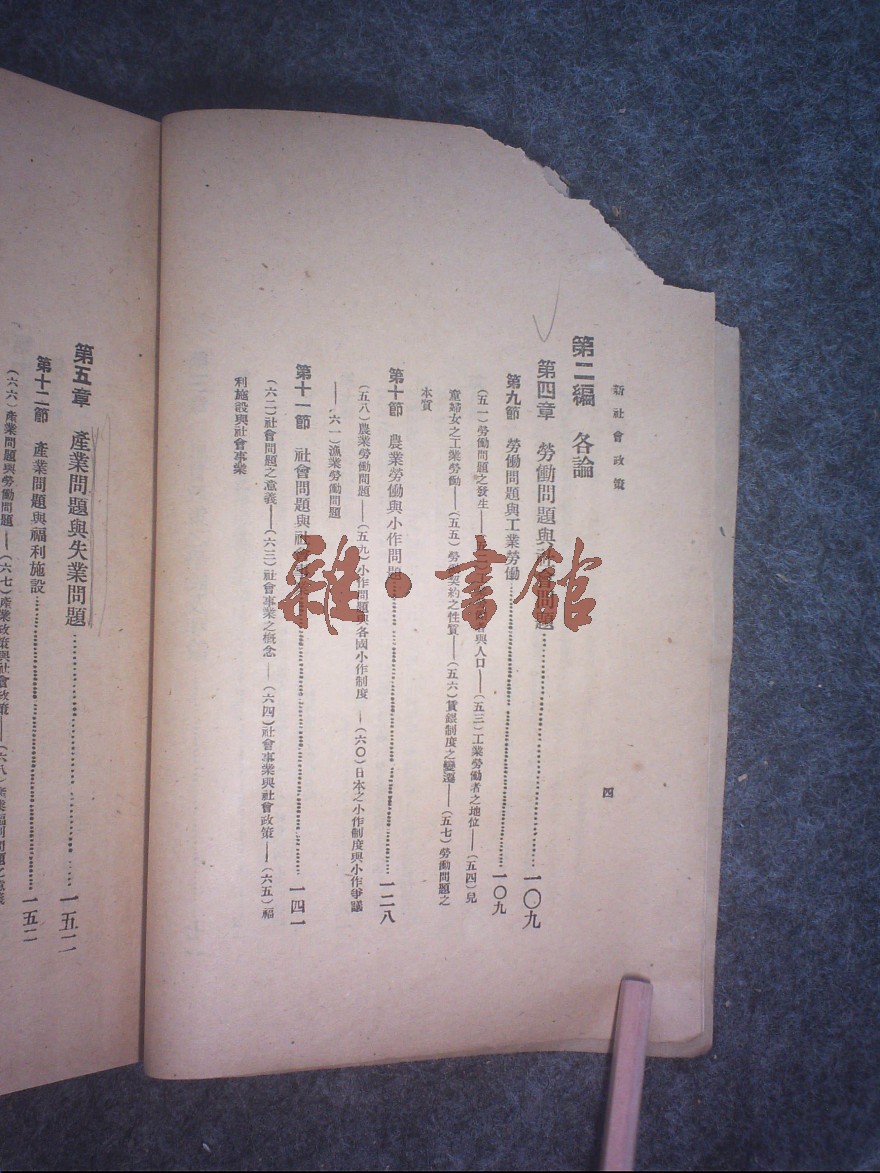 新社會政策
四
第二編　各論
第四章　勞働問題與社會問題……一〇九
第九節　勞働問題與工業勞働……一〇九
（五一）勞働問題之發生——與人口——（五三）工業勞働者之地位——（五四）兒
童婦女之工業勞働——（五五）勞働契約之性質——（五六）賃銀制度之變遷——（五七）勞働問題之
本質
第十節　農業勞働與小作問題……一二八
（五八）農業勞働問題——（五九）小作問題與各國小作制度——（六〇）日本之小作制度與小作爭議
——（六一）漁業勞働問題
第十一節　社會問題與社……一四一
（六二）社會問題之意義——（六三）社會事業之概念——（六四）社會事業與社會政策——（六五）福
利施設與社會事業
第五章　產業問題與失業問題……一五二
第十二節　產業問題與福利施設……一五二
（六六）產業問題與勞働問題——（六七）產業政策與社會政策——（六八）產業福利問題之意義
雜·書館